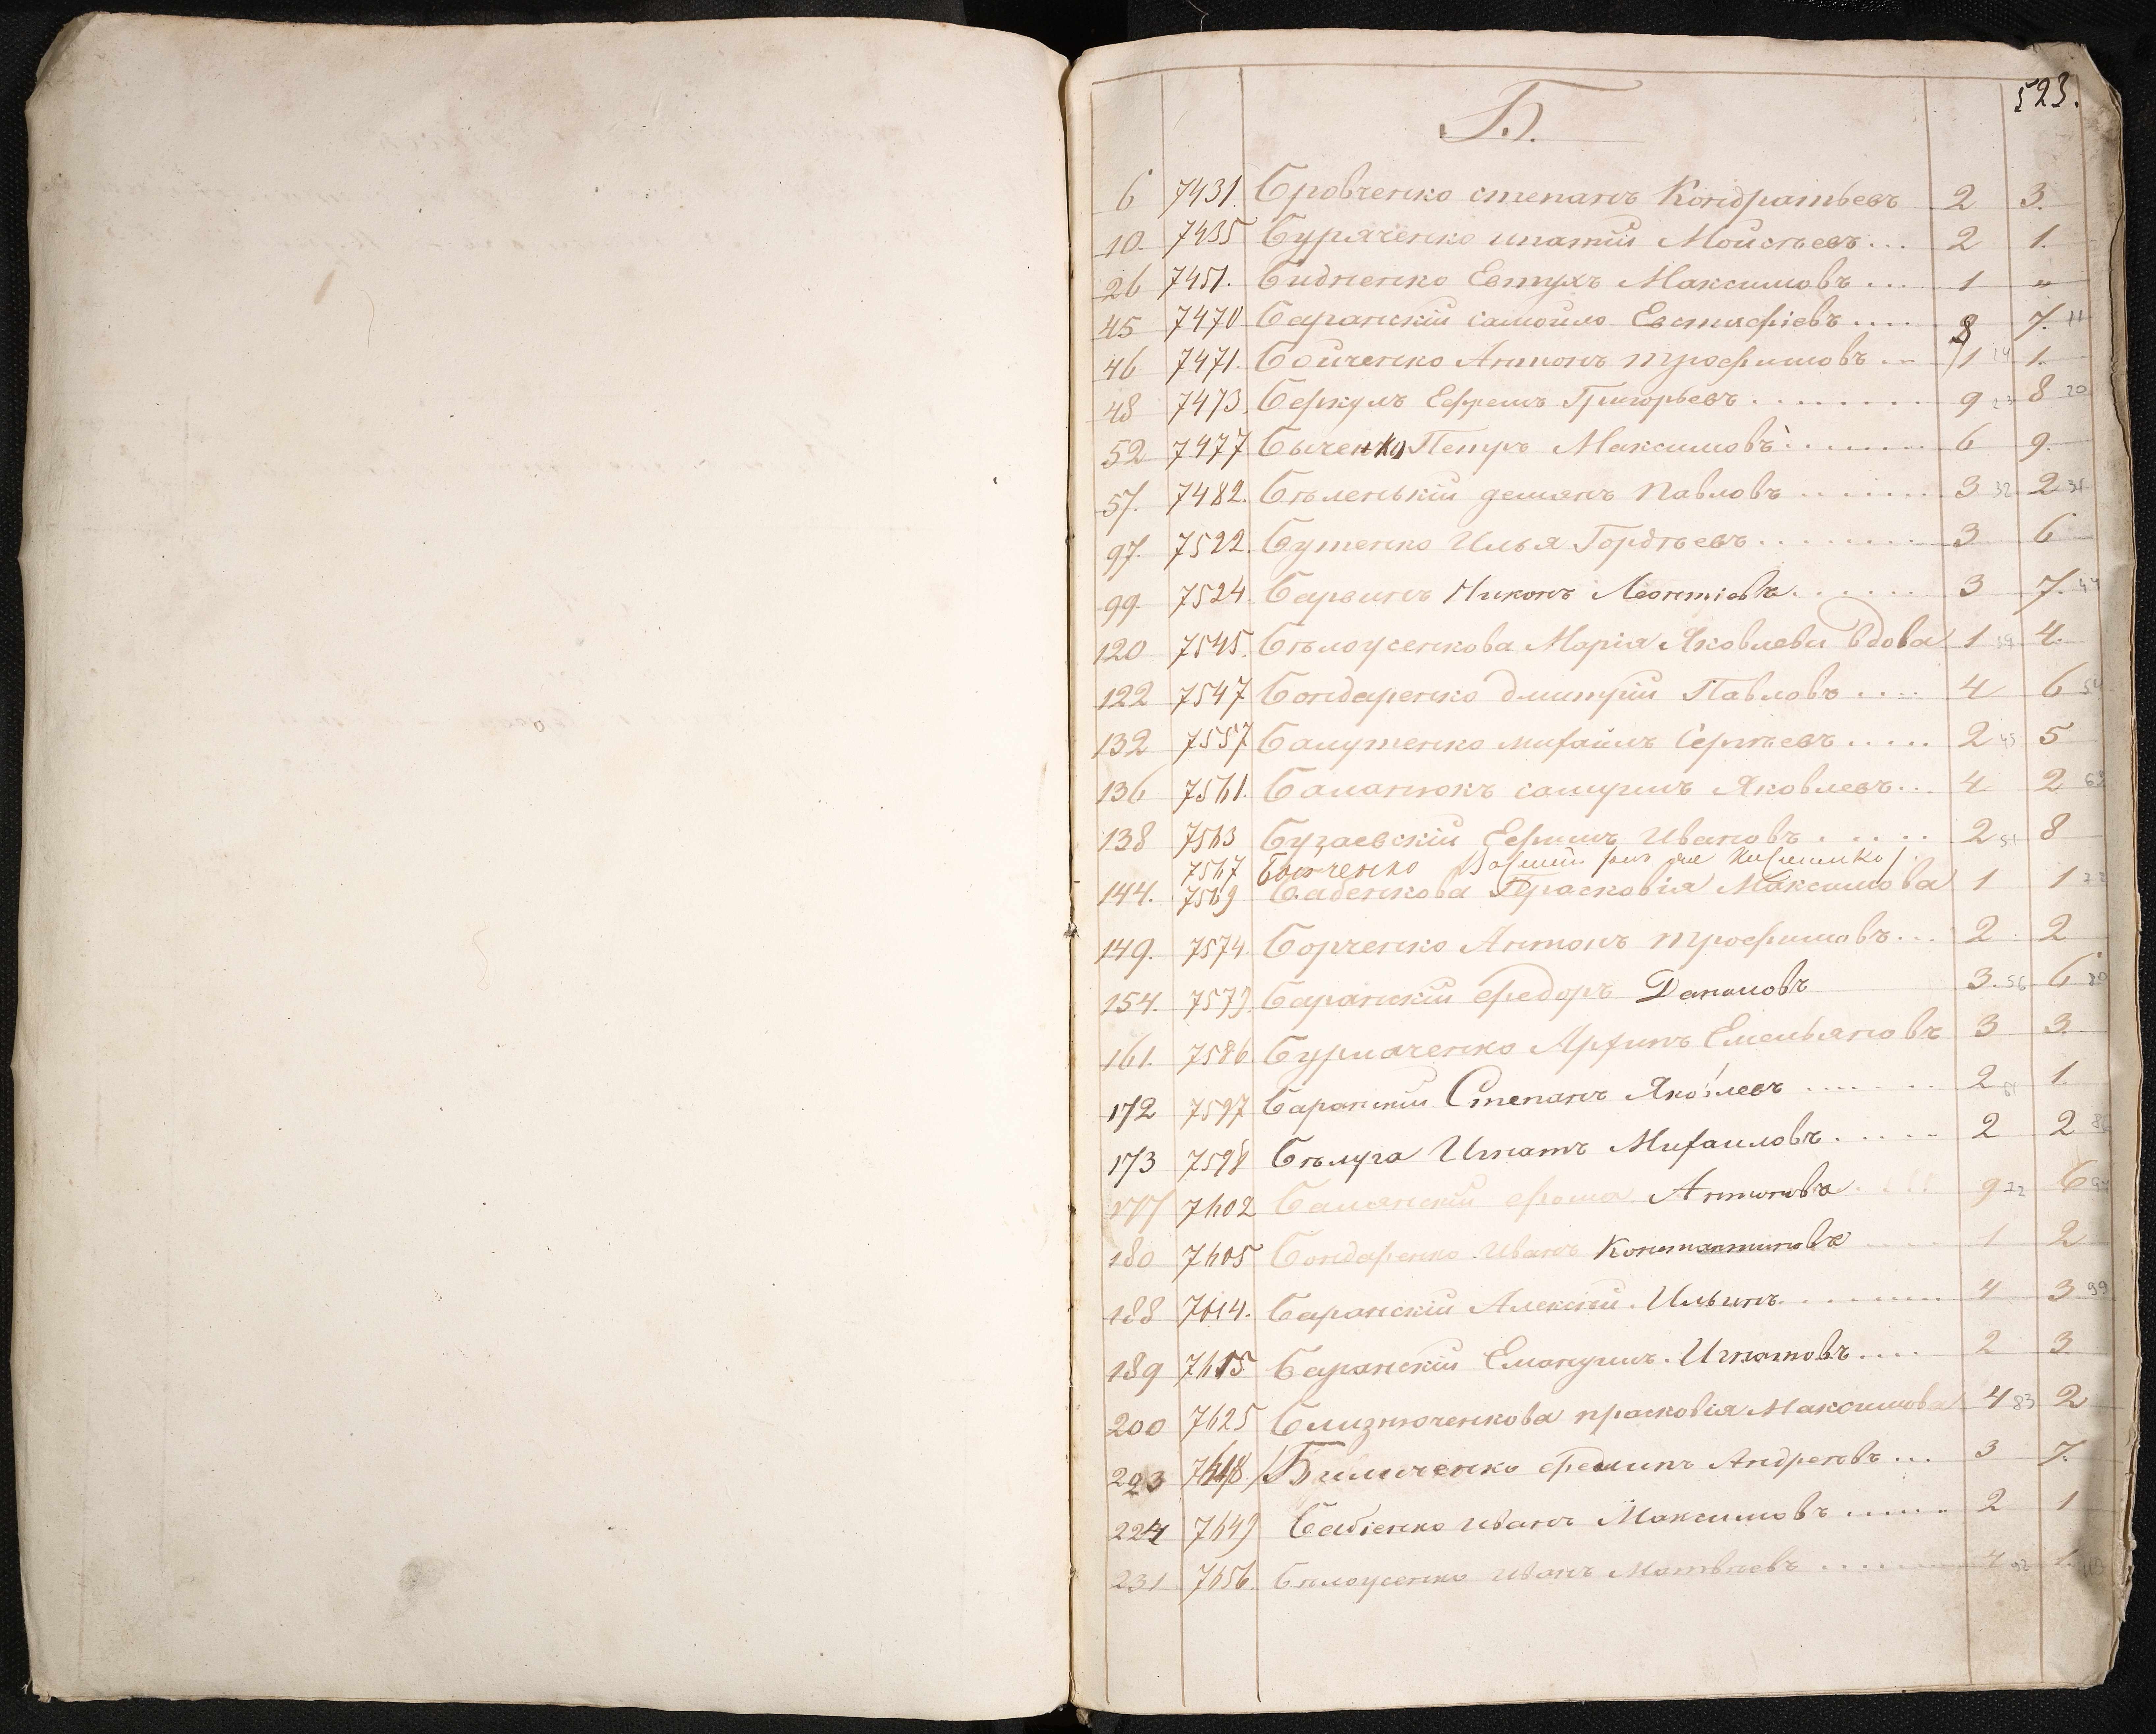 523.
Б.
6 7431. Бровченко степанъ Кондратьевъ 2 3.
10. 7435 Буряченко ипатій Мойсѣевъ... 2 1.
26 7451. Бидненко Евтухъ Максимовъ... 1 "
45 7470 Баранскій самойло Евстафіевъ.... 8 7. 11
46 7471. Бойченко Антонъ трофимовъ... 1 14 1.
48 7473. Беркулъ Ефремъ Григорьевъ........ 9 23 8 20
52 7477 Быченко Петръ Максимовъ........ 6 9.
57. 7482. Бѣленькій демянъ павловъ....... 3 32 2 31
97. 7522. Бутенко Илья Гордѣевъ........ 3 6
99. 7524. Барвинъ Никонъ Леонтіевъ...... 3 7. 44
120 7545. Бѣлоусенкова Марія Яковлева вдова 1 39 4.
122 7547 Бондаренко дмитрій Павловъ.... 4 6 54
132 7557 Балутенко михайлъ Сергѣевъ..... 2 45 5
136 7561. Баланюкъ самуилъ Яковлевъ... 4 2 63
138 7563 Бугаевскій Ефимъ Ивановъ...... 2 51 8
7567 Бойченко
144. 7569 Бабенкова Прасковія Максимова 1 1 72
149. 7574. Борченко Антонъ трофимовъ... 2 2
154. 7579. Баранскій федоръ Даниловъ 3. 56 6 80
161. 7586 Бурлаченко Архипъ Емельяновъ 3 3.
172 7597 Баранскій Степанъ Яковлевъ....... 2 61 1.
173 7598 Бѣлуга Игнатъ Михаиловъ..... 2 2 86
177 7602 фома Антоновъ 9 72 6
180 7605 Бондаренко Иванъ Константиновъ.... 1 2
188 7614. Баранскій Алексѣй. Ильинъ......... 4 3 99
189 7615 Баранскій Емануилъ. Игнатовъ.... 2 3.
200 7625 Близнюченкова прасковія Максимова 4 83 2
223 7648. Биличенко Андреевъ... 3 7.
224 7649 Бабіенко иванъ Максимовъ....... 2 1
231 7656. Бѣлоусенко иванъ Матвѣевъ....... 4 92 1. 113